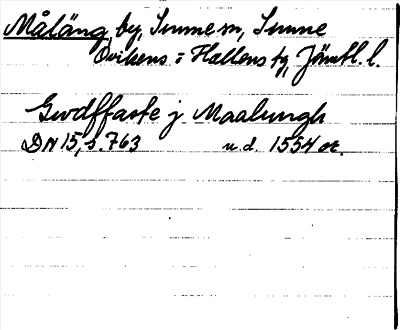 Målång by, Sunne sn, Sunne
Ovikens o Hallens tg, Jämtl. l.
Gwdffaste j Maalungh
DN 15, s. 763 u.d. 1554 or.